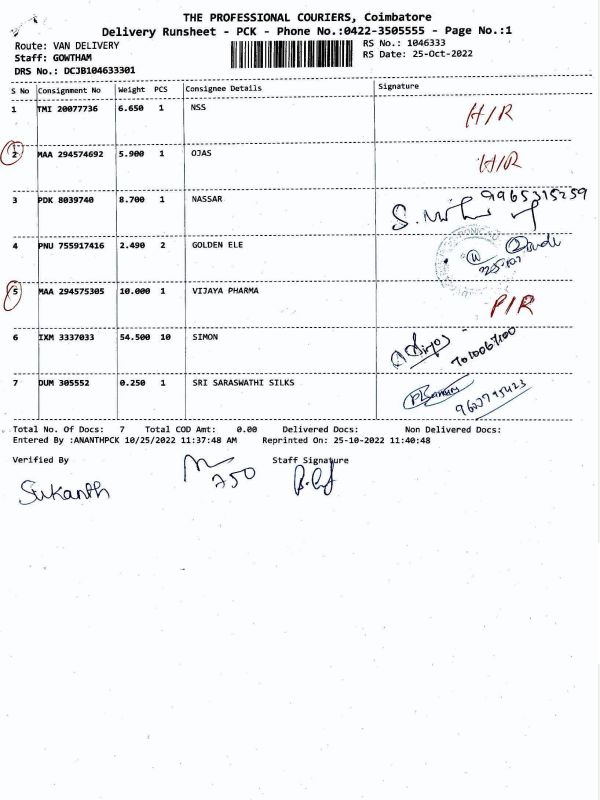 THE PROFESSIONAL COURIERS, Coimbatore
Delivery Runsheet - PCK - Phone No.:0422-3505555 - Page No.:1
Route: VAN DELIVERY RS No.: 1046333
Staff: GOWTHAM RS Date: 25-Oct-2022
DRS No.: DCJB104633301
S No Consignment No Weight PCS Consignee Details Signature
1 TMI 20077736 6.650 1 NSS H/R
2 MAA 294574692 5.900 1 OJAS H/R
3 PDK 8039740 8.700 1 NASSAR 9965315259
4 PNU 755917416 2.490 2 GOLDEN ELE
5 MAA 294575305 10.000 1 VIJAYA PHARMA P/R
6 IXM 3337033 54.500 10 SIMON
7 DUM 305552 0.250 1 SRI SARASWATHI SILKS
Total No. Of Docs: 7 Total COD Amt: 0.00 Delivered Docs: Non Delivered Docs:
Entered By :ANANTHPCK 10/25/2022 11:37:48 AM Reprinted On: 25-10-2022 11:40:48
Verified By Staff Signature
750
Sukanth